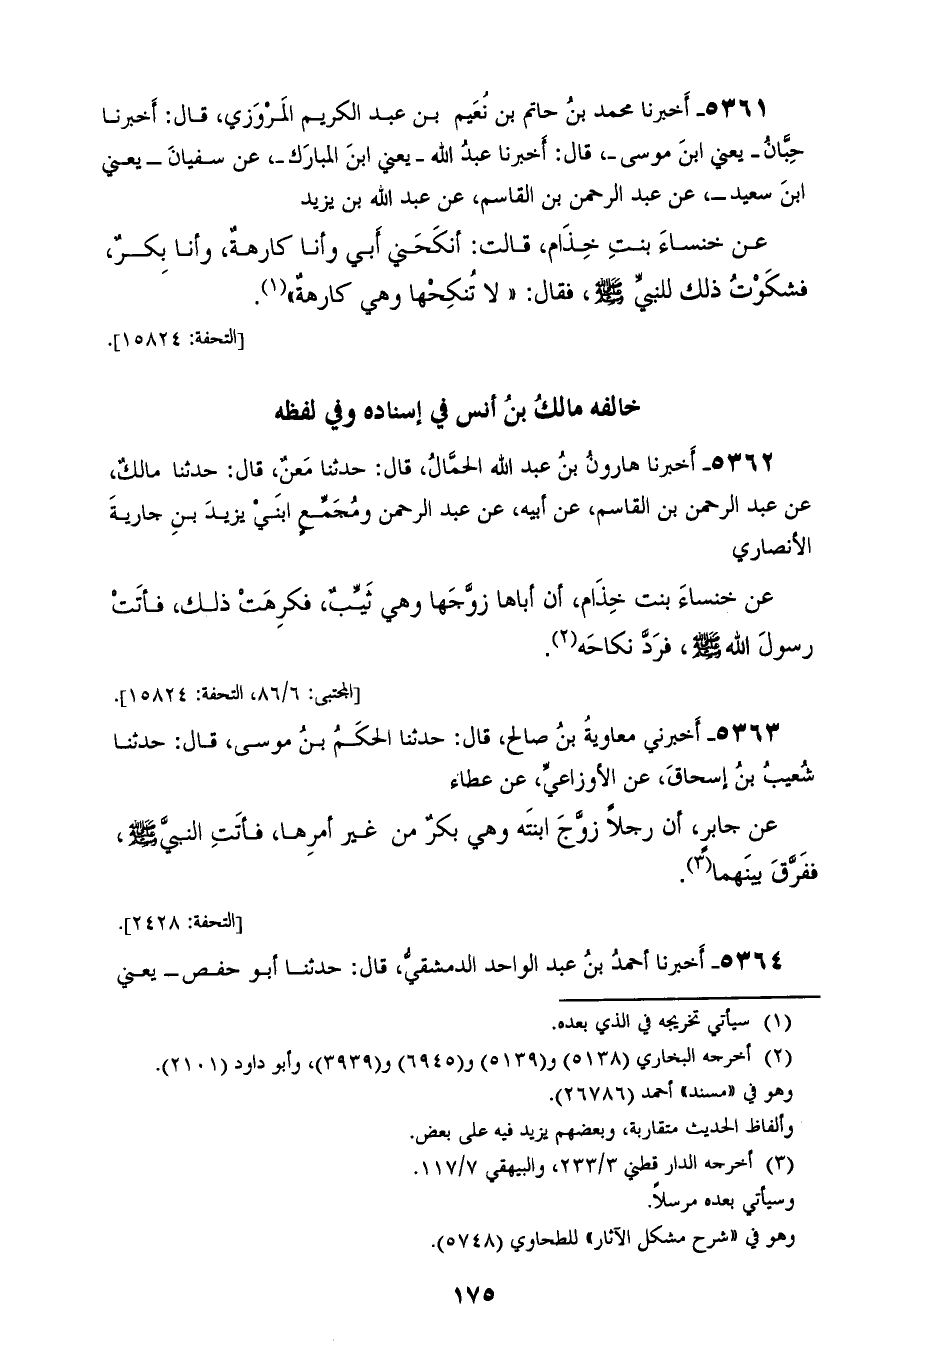 ٥٣٦١ـ أَخبرنا محمد بنُ حاتم بن نُعَيم بن عبد الكريم المَرْوَزي، قال: أَخبرنا
حِبَّانُ ـ يعني ابنَ موسى ـ، قال: أَخبرنا عبدُ الله ـ يعني ابنَ المبارَك ـ، عن سفيانَ ـ يعني
ابنَ سعيد ـ، عن عبد الرحمن بن القاسم، عن عبد الله بن يزيد
عن خنساءَ بنتِ خِذَام، قالت: أنكَحَني أَبي وأنا كارهةٌ، وأنا بِكرٌ،
فشكَوْتُ ذلك للنبيِّ ﷺ، فقال: « لا تُنكِحْها وهي كارهةٌ»(١).
[التحفة: ١٥٨٢٤].
خالفه مالكُ بنُ أنس في إسناده وفي لفظه
٥٣٦٢ـ أَخبرنا هارونُ بنُ عبد الله الحمَّالُ، قال: حدثنا مَعنٌ، قال: حدثنا مالكٌ،
عن عبد الرحمن بن القاسم، عن أبيه، عن عبد الرحمن ومُجَمِّعٍ ابنَيْ يزيدَ بنِ جاريةَ
الأنصاري
عن خنساءَ بنت خِذَام، أن أباها زوَّجَها وهي ثَيِّبٌ، فكرِهَتْ ذلك، فأتَتْ
رسولَ الله ﷺ، فرَدَّ نكاحَه(٢).
[المجتبى: ٨٦/٦، التحفة: ١٥٨٢٤].
٥٣٦٣ـ أَخبرني معاويةُ بنُ صالح، قال: حدثنا الحكَمُ بنُ موسى، قال: حدثنا
شُعيبُ بنُ إسحاقَ، عن الأوزاعيِّ، عن عطاء
عن جابرٍ، أن رجلاً زوَّجَ ابنتَه وهي بكرٌ من غير أمرِها، فأتَتِ النبيَّ ﷺ،
ففَرَّقَ بينَهما(٣).
[التحفة: ٢٤٢٨].
٥٣٦٤ـ أَخبرنا أحمدُ بنُ عبد الواحد الدمشقيُّ، قال: حدثنا أبو حفص ـ يعني
(١) سيأتي تخريجه في الذي بعده.
(٢) أخرجه البخاري (٥١٣٨) و(٥١٣٩) و(٦٩٤٥) و(٣٩٣٩)، وأبو داود (٢١٠١).
وهو في «مسند» أحمد (٢٦٧٨٦).
وألفاظ الحديث متقاربة، وبعضهم يزيد فيه على بعض.
(٣) أخرجه الدار قطني ٢٣٣/٣، والبيهقي ١١٧/٧.
وسيأتي بعده مرسلاً.
وهو في «شرح مشكل الآثار» للطحاوي (٥٧٤٨).
١٧٥